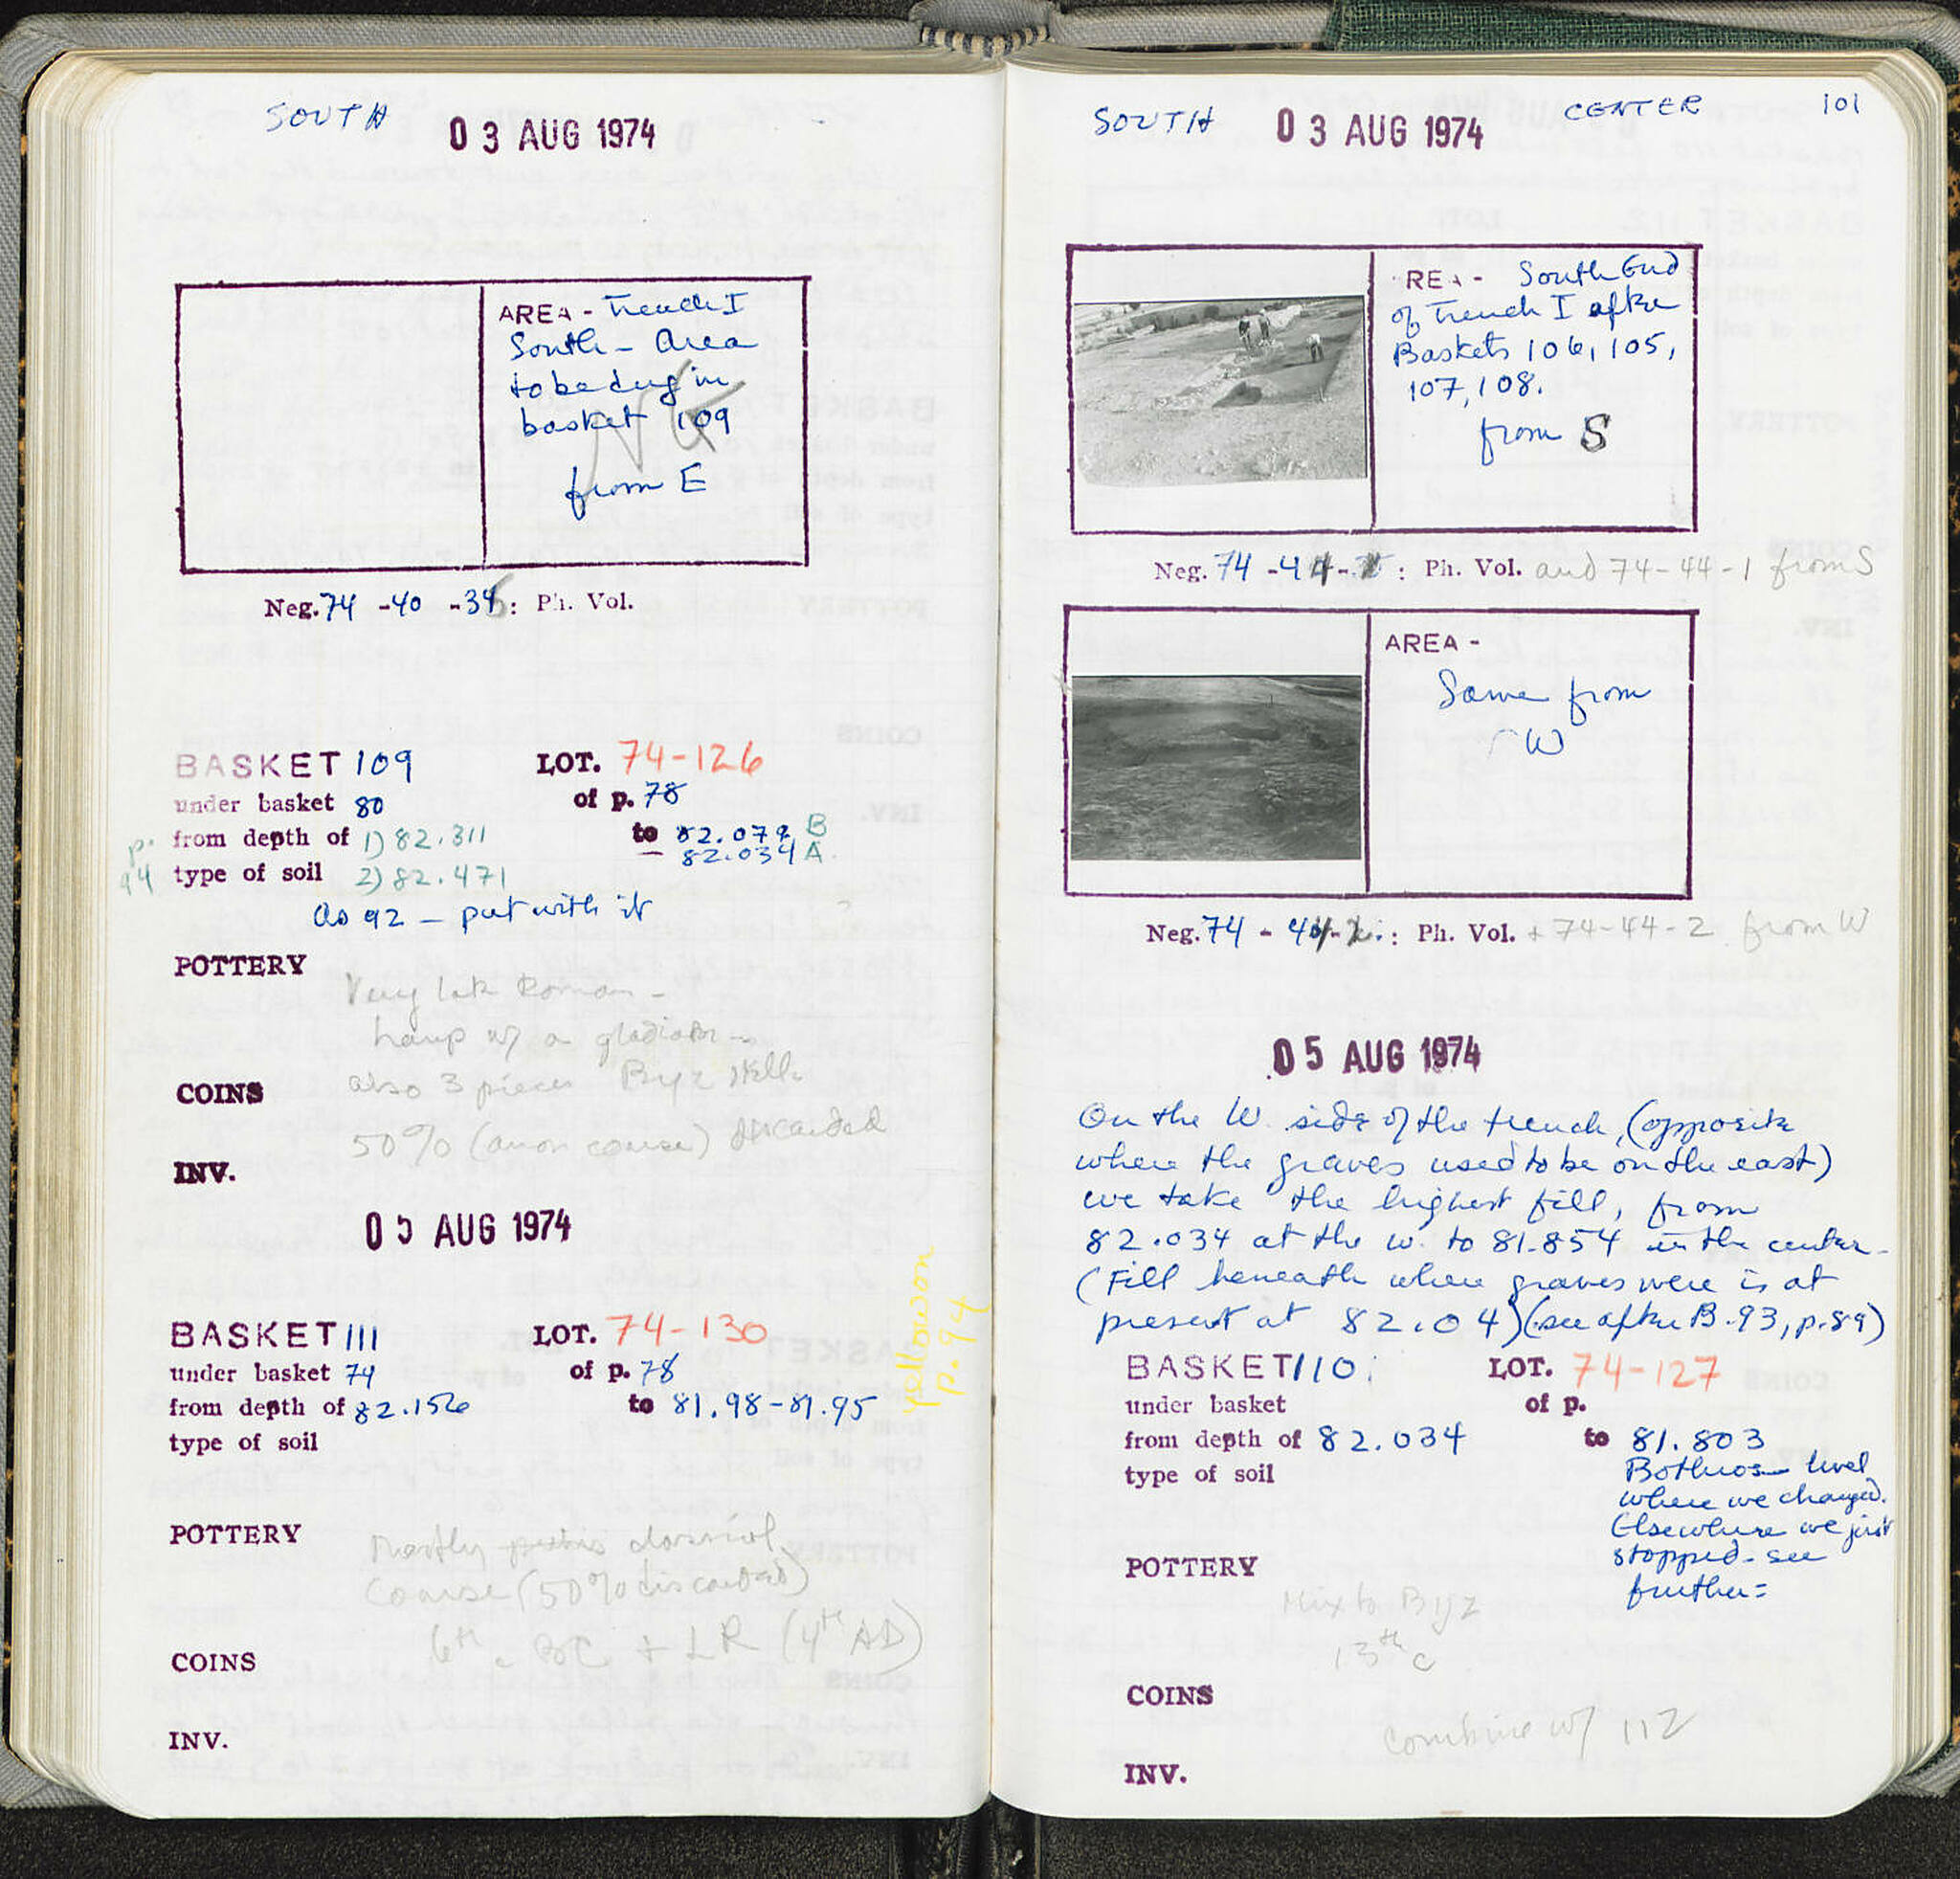 SOUTH
03 AUG 1974
AREA - Trench I
South - Area
to be dug in
basket 109
NG
from E
Neg. 74 -40 -36 : Ph. Vol.
BASKET 109 LOT. 74-126
under basket 80 of p. 78
p. from depth of 1) 82.311 to 82.079 B
82.034 A
94 type of soil 2) 82.471
As 92 - put with it
POTTERY
Very late Roman -
Lamp w/ a gladiator -
COINS also 3 pieces Byz
50% (amor coarse) discarded
INV.
05 AUG 1974
yellow on
p. 94
BASKET 111 LOT. 74-130
under basket 74 of p. 78
from depth of 82.156 to 81.98-81.95
type of soil
POTTERY
Mostly classical
coarse (50% discarded)
6th c BC + LR (4th AD)
COINS
INV.
SOUTH 03 AUG 1974 CENTER 101
REA - South End
of Trench I after
Baskets 106, 105,
107, 108.
from S
Neg. 74 -44- : Ph. Vol. and 74-44-1 from S
AREA -
Same from
W
Neg. 74 - 44- : Ph. Vol. + 74-44-2 from W
05 AUG 1974
On the W. side of the trench, (opposite
where the graves used to be on the east)
we take the highest fill, from
82.034 at the w. to 81.854 in the center.
(Fill beneath where graves were is at
present at 82.04) (see after B.93, p.89)
BASKET 110 LOT. 74-127
under basket of p.
from depth of 82.034 to 81.803
type of soil
Bothros level
where we changed.
Elsewhere we just
stopped - see
further =
POTTERY
Mix to Byz
13th c
COINS
combine w/ 112
INV.